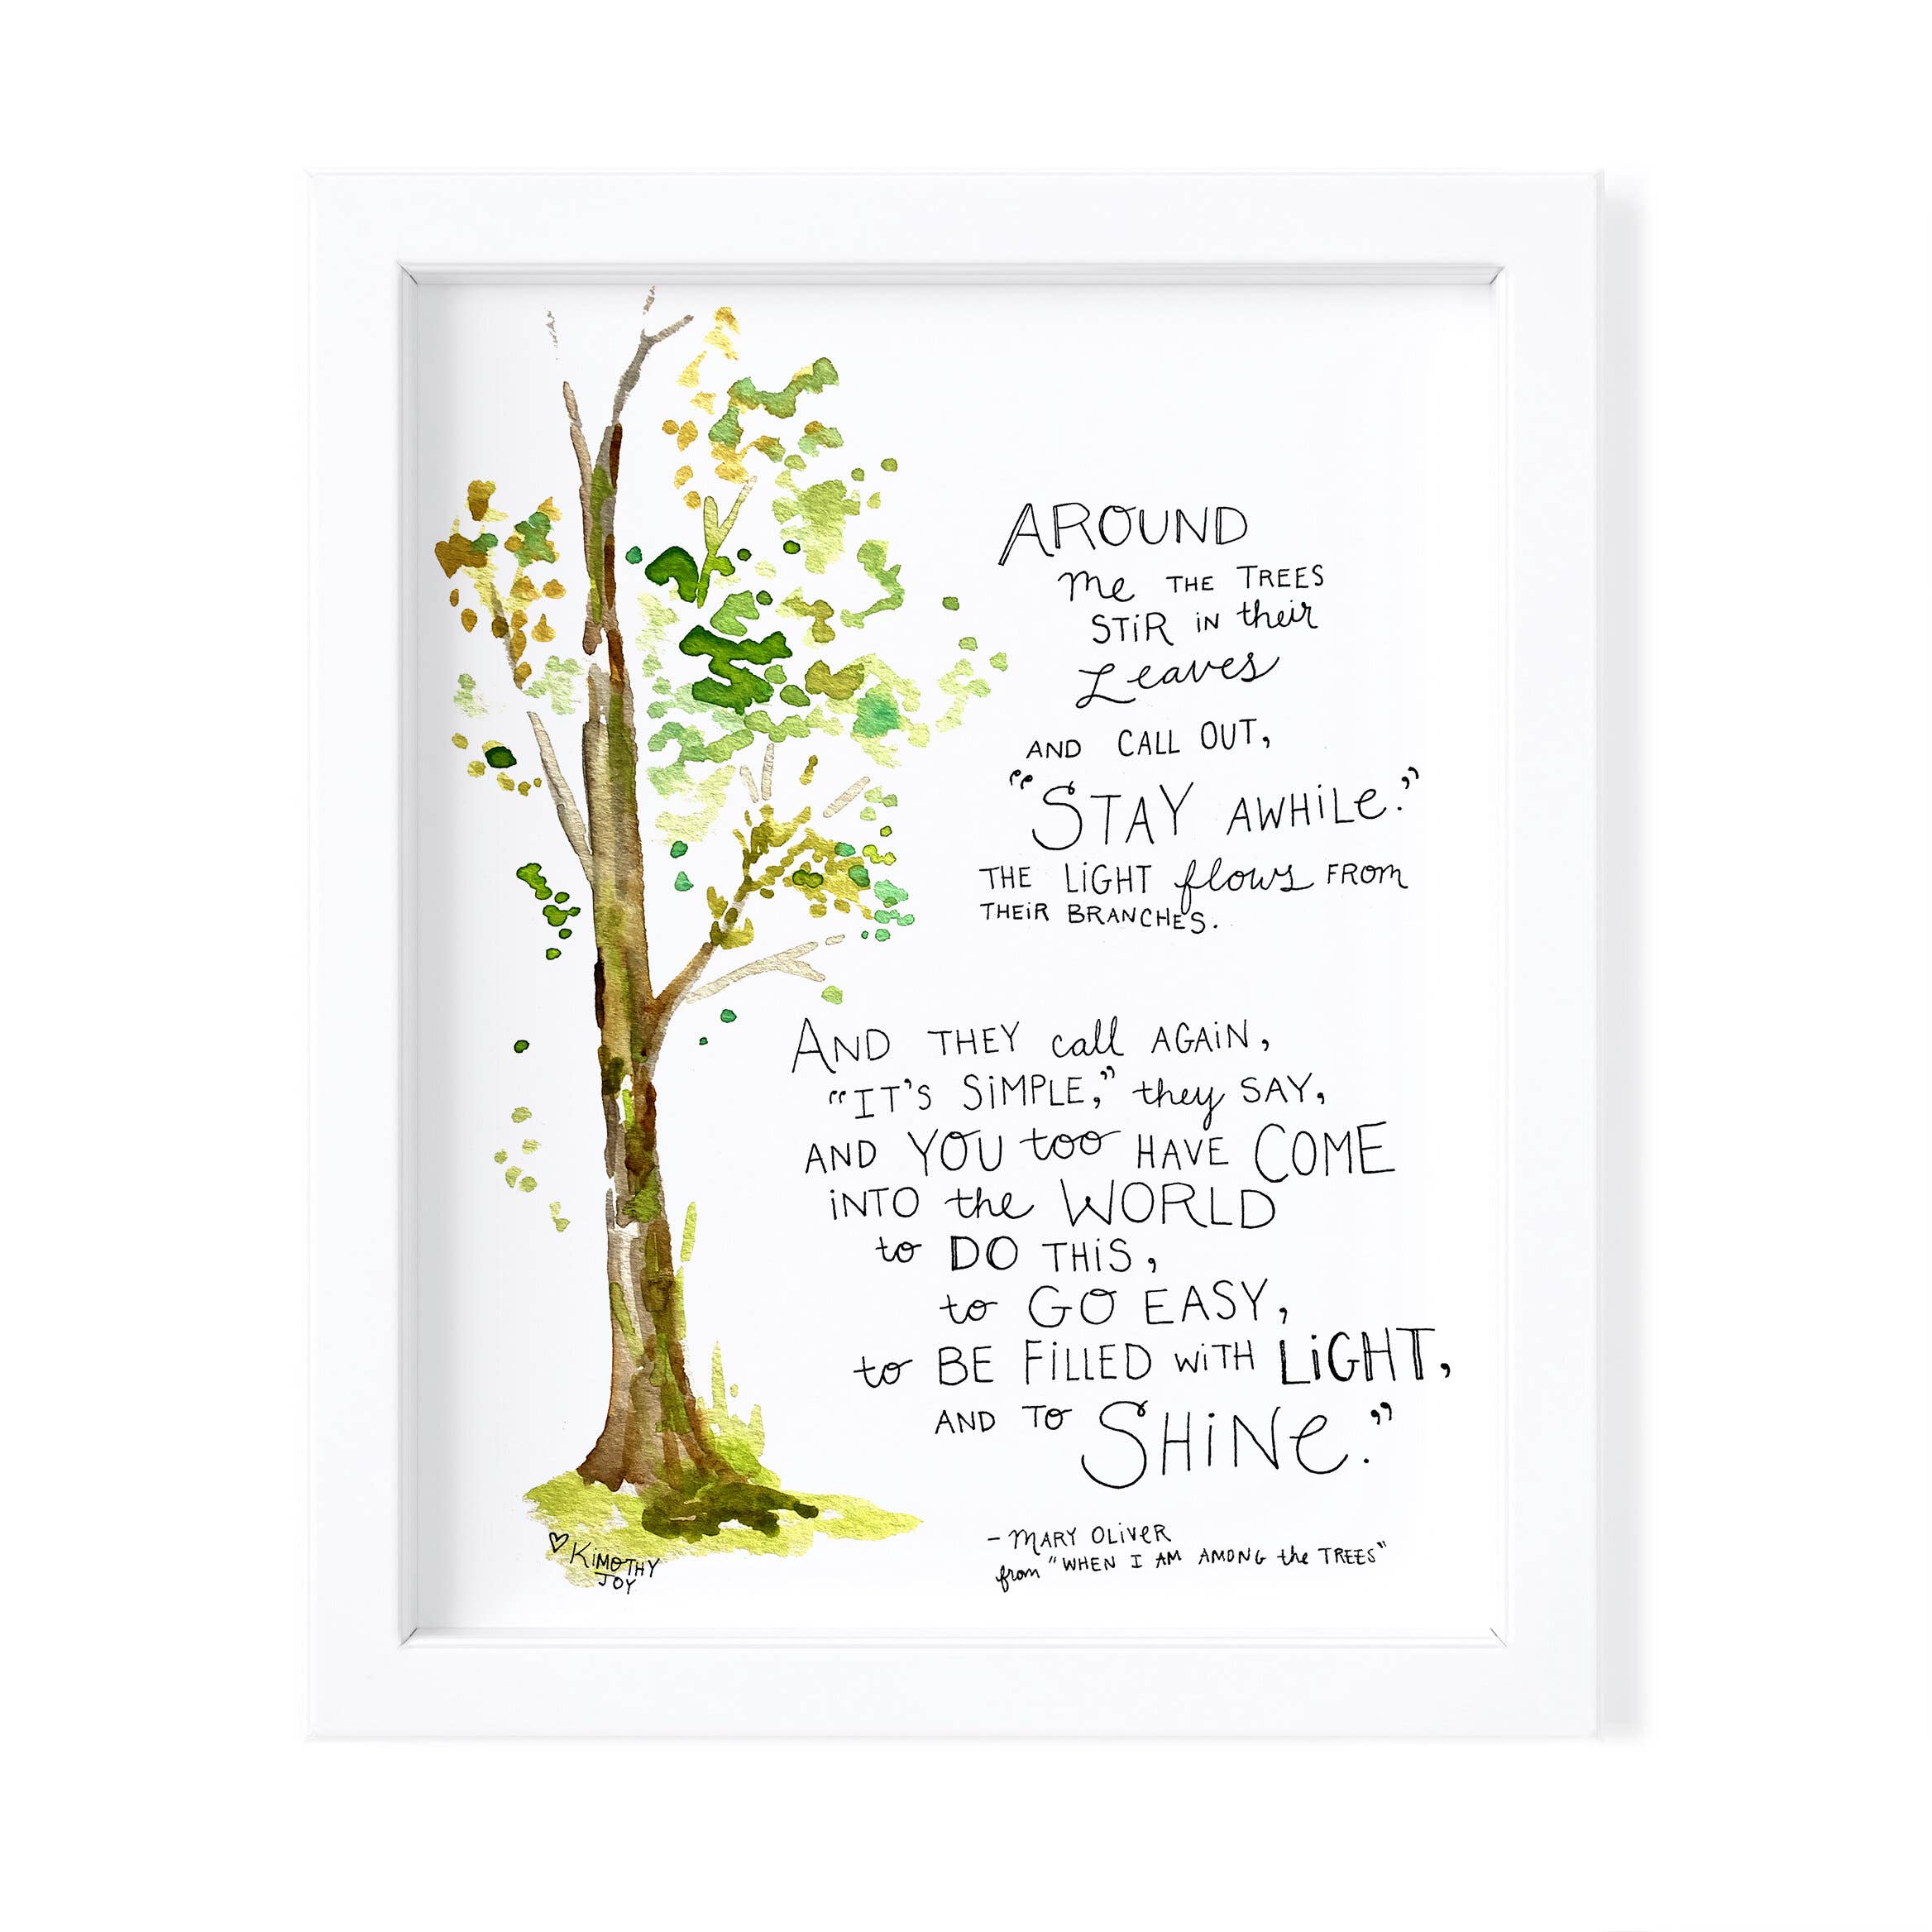 AROUND
me THE TREES
STiR iN their
Leaves
AND CALL OUT,
"STAY AWHiLe."
THE LiGHT flows FROm
THEiR BRANCHES.
AND THEY call AGAiN,
"IT'S SiMPLE," they SAY,
AND YOU too HAVE COME
iNTO the WORLD
to DO THiS,
to GO EASY,
to BE FiLLED WiTH LiGHT,
AND TO SHiNe."
- MARY OLiVeR
from "WHEN I AM AMONG the TREES"
♡ KiMOTHY
JOY